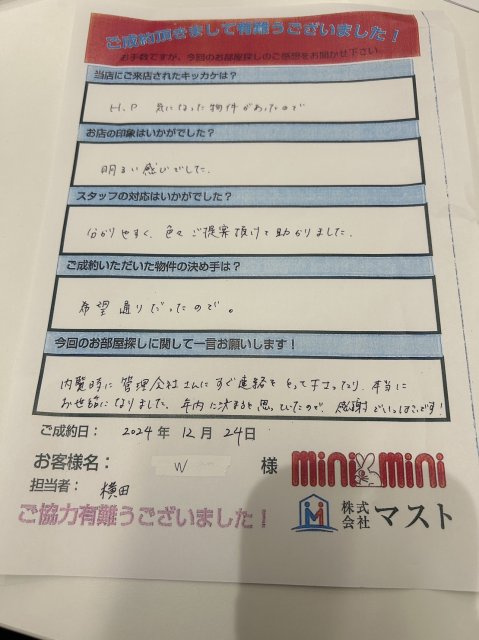 ご成約頂きまして有難うございました！
お手数ですが、今回のお部屋探しのご感想をお聞かせ下さい。
当店にご来店されたキッカケは？
H.P 気になった物件があったので
お店の印象はいかがでした？
明るい感じでした.
スタッフの対応はいかがでした？
分かりやすく、色々ご提案頂けて助かりました.
ご成約いただいた物件の決め手は？
希望通りだったので。
今回のお部屋探しに関して一言お願いします！
内覧時に管理会社さんにすぐ連絡をとって下さったり、本当に
お世話になりました. 年内に決まると思っていたので、感謝でいっぱいです！
ご成約日： 2024年 12月 24日
お客様名： W 様
担当者： 横田
mini mini
ご協力有難うございました！
株式会社 マスト